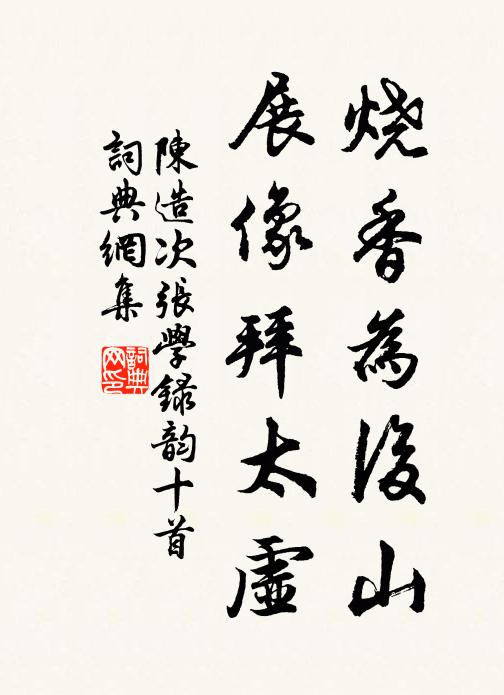 烧香为後山
展像拜太虚
陳造次張學錄韵十首
詞典網集
詞典
网印